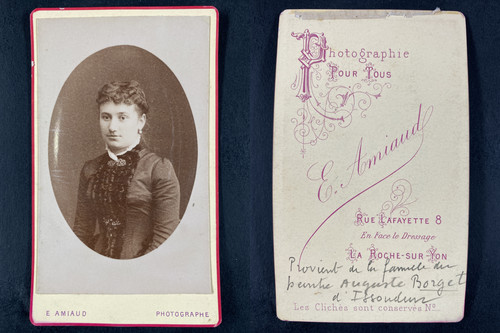 E. AMIAUD PHOTOGRAPHE
Photographie
POUR TOUS
E. Amiaud
RUE LAFAYETTE 8
En Face le Dressage
LA ROCHE-SUR-YON
Provient de la famille du
peintre Auguste Borget
d'Issoudun
Les Clichés sont conservés Nº